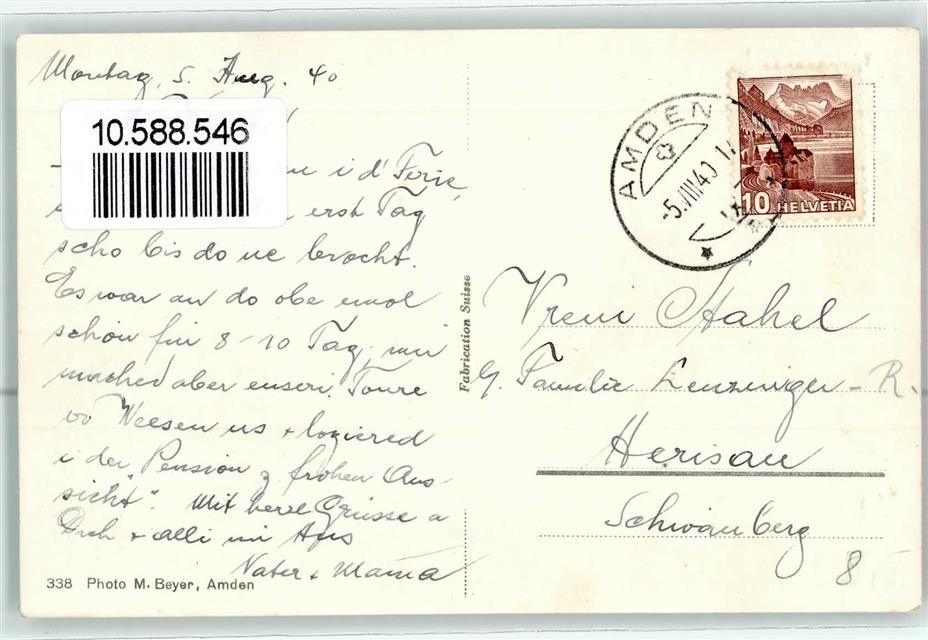 Montag, 5. Aug. 40
10.588.546
i d' Ferie,
erst Tag
scho bis do ue brocht.
Es war au do obe emol
schön für 8-10 Tag, mir
mached aber euseri Toure
vo Weesen us + logiered
i der "Pension z frohen Aus-
sicht". Mit herzl Grüsse a
Dich + alli im
Vater + Mama
338 Photo M. Beyer, Amden
Fabrication Suisse
AMDEN
-5.VIII.40
10 HELVETIA
Vreni Stahel
Familie Lenzinger-R.
Herisau
Schwanberg
8